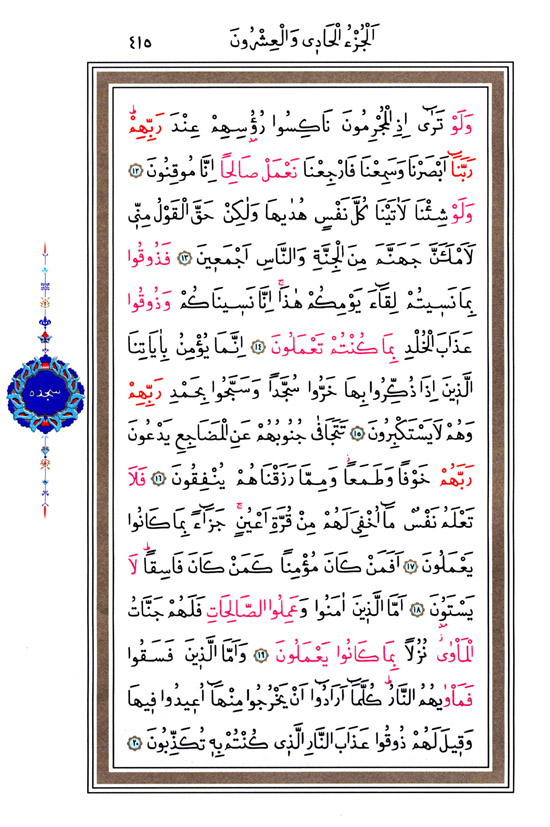 اَلْجُزْءُ الْحَادِي وَالْعِشْرُونَ ٤١٥
وَلَوْ تَرٰٓى اِذِ الْمُجْرِمُونَ نَاكِسُوا رُؤُ۫سِهِمْ عِنْدَ رَبِّهِمْۜ
رَبَّنَٓا اَبْصَرْنَا وَسَمِعْنَا فَارْجِعْنَا نَعْمَلْ صَالِحًا اِنَّا مُوقِنُونَ ﴿١٢﴾
وَلَوْ شِئْنَا لَاٰتَيْنَا كُلَّ نَفْسٍ هُدٰيهَا وَلٰكِنْ حَقَّ الْقَوْلُ مِنّ۪ي
لَاَمْلَـَٔنَّ جَهَنَّمَ مِنَ الْجِنَّةِ وَالنَّاسِ اَجْمَع۪ينَ ﴿١٣﴾ فَذُوقُوا
بِمَا نَس۪يتُمْ لِقَٓاءَ يَوْمِكُمْ هٰذَاۚ اِنَّا نَس۪ينَاكُمْ وَذُوقُوا
عَذَابَ الْخُلْدِ بِمَا كُنْتُمْ تَعْمَلُونَ ﴿١٤﴾ اِنَّمَا يُؤْمِنُ بِاٰيَاتِنَا
الَّذ۪ينَ اِذَا ذُكِّرُوا بِهَا خَرُّوا سُجَّدًا وَسَبَّحُوا بِحَمْدِ رَبِّهِمْ
وَهُمْ لَا يَسْتَكْبِرُونَ ﴿١٥﴾ تَتَجَافٰى جُنُوبُهُمْ عَنِ الْمَضَاجِعِ يَدْعُونَ
سجده
رَبَّهُمْ خَوْفًا وَطَمَعًاۘ وَمِمَّا رَزَقْنَاهُمْ يُنْفِقُونَ ﴿١٦﴾ فَلَا
تَعْلَمُ نَفْسٌ مَٓا اُخْفِيَ لَهُمْ مِنْ قُرَّةِ اَعْيُنٍۚ جَزَٓاءً بِمَا كَانُوا
يَعْمَلُونَ ﴿١٧﴾ اَفَمَنْ كَانَ مُؤْمِنًا كَمَنْ كَانَ فَاسِقًاۜ لَا
يَسْتَوُ۫نَ ﴿١٨﴾ اَمَّا الَّذ۪ينَ اٰمَنُوا وَعَمِلُوا الصَّالِحَاتِ فَلَهُمْ جَنَّاتُ
الْمَأْوٰىۘ نُزُلًا بِمَا كَانُوا يَعْمَلُونَ ﴿١٩﴾ وَاَمَّا الَّذ۪ينَ فَسَقُوا
فَمَأْوٰيهُمُ النَّارُۜ كُلَّمَٓا اَرَادُٓوا اَنْ يَخْرُجُوا مِنْهَٓا اُع۪يدُوا ف۪يهَا
وَق۪يلَ لَهُمْ ذُوقُوا عَذَابَ النَّارِ الَّذ۪ي كُنْتُمْ بِه۪ تُكَذِّبُونَ ﴿٢٠﴾